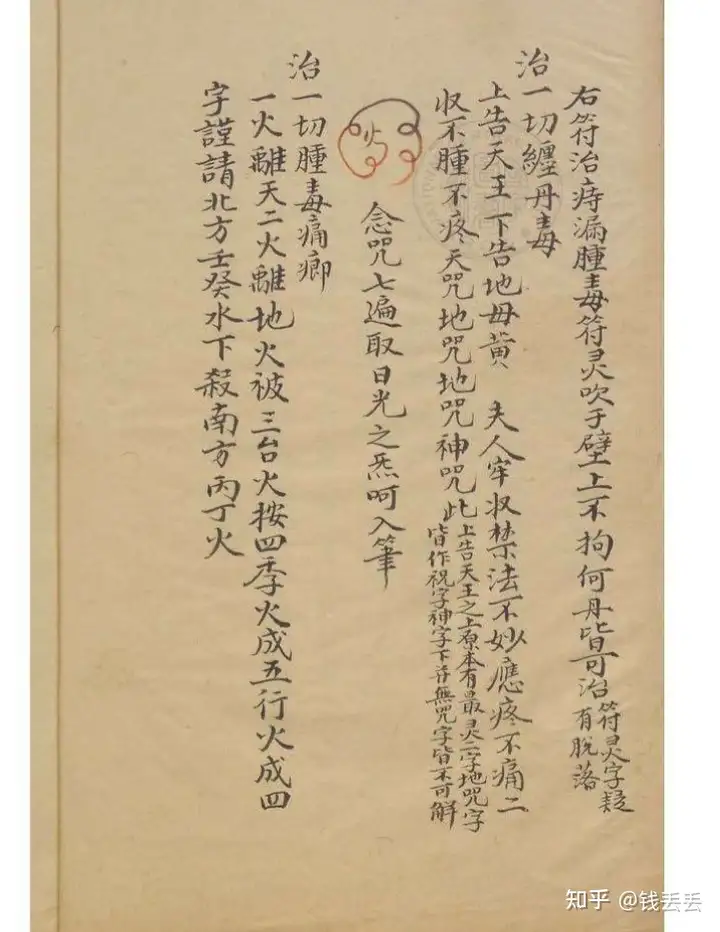 右符治痔漏腫毒符灵吹于壁上不拘何丹皆可治符灵字疑有脫落
治一切纏丹毒
上告天王下告地母黄 夫人牢収禁法不妙應疼不痛二
収不腫不疼天咒地咒地咒神咒此上告天王之上原本有最灵二字地咒字
皆作祝字神字下并無咒字皆不可解
火
念咒七遍取日光之炁呵入筆
治一切腫毒痛癤
一火離天二火離地火被三台火按四季火成五行火成四
字謹請北方壬癸水下殺南方丙丁火
知乎 @钱丢丢